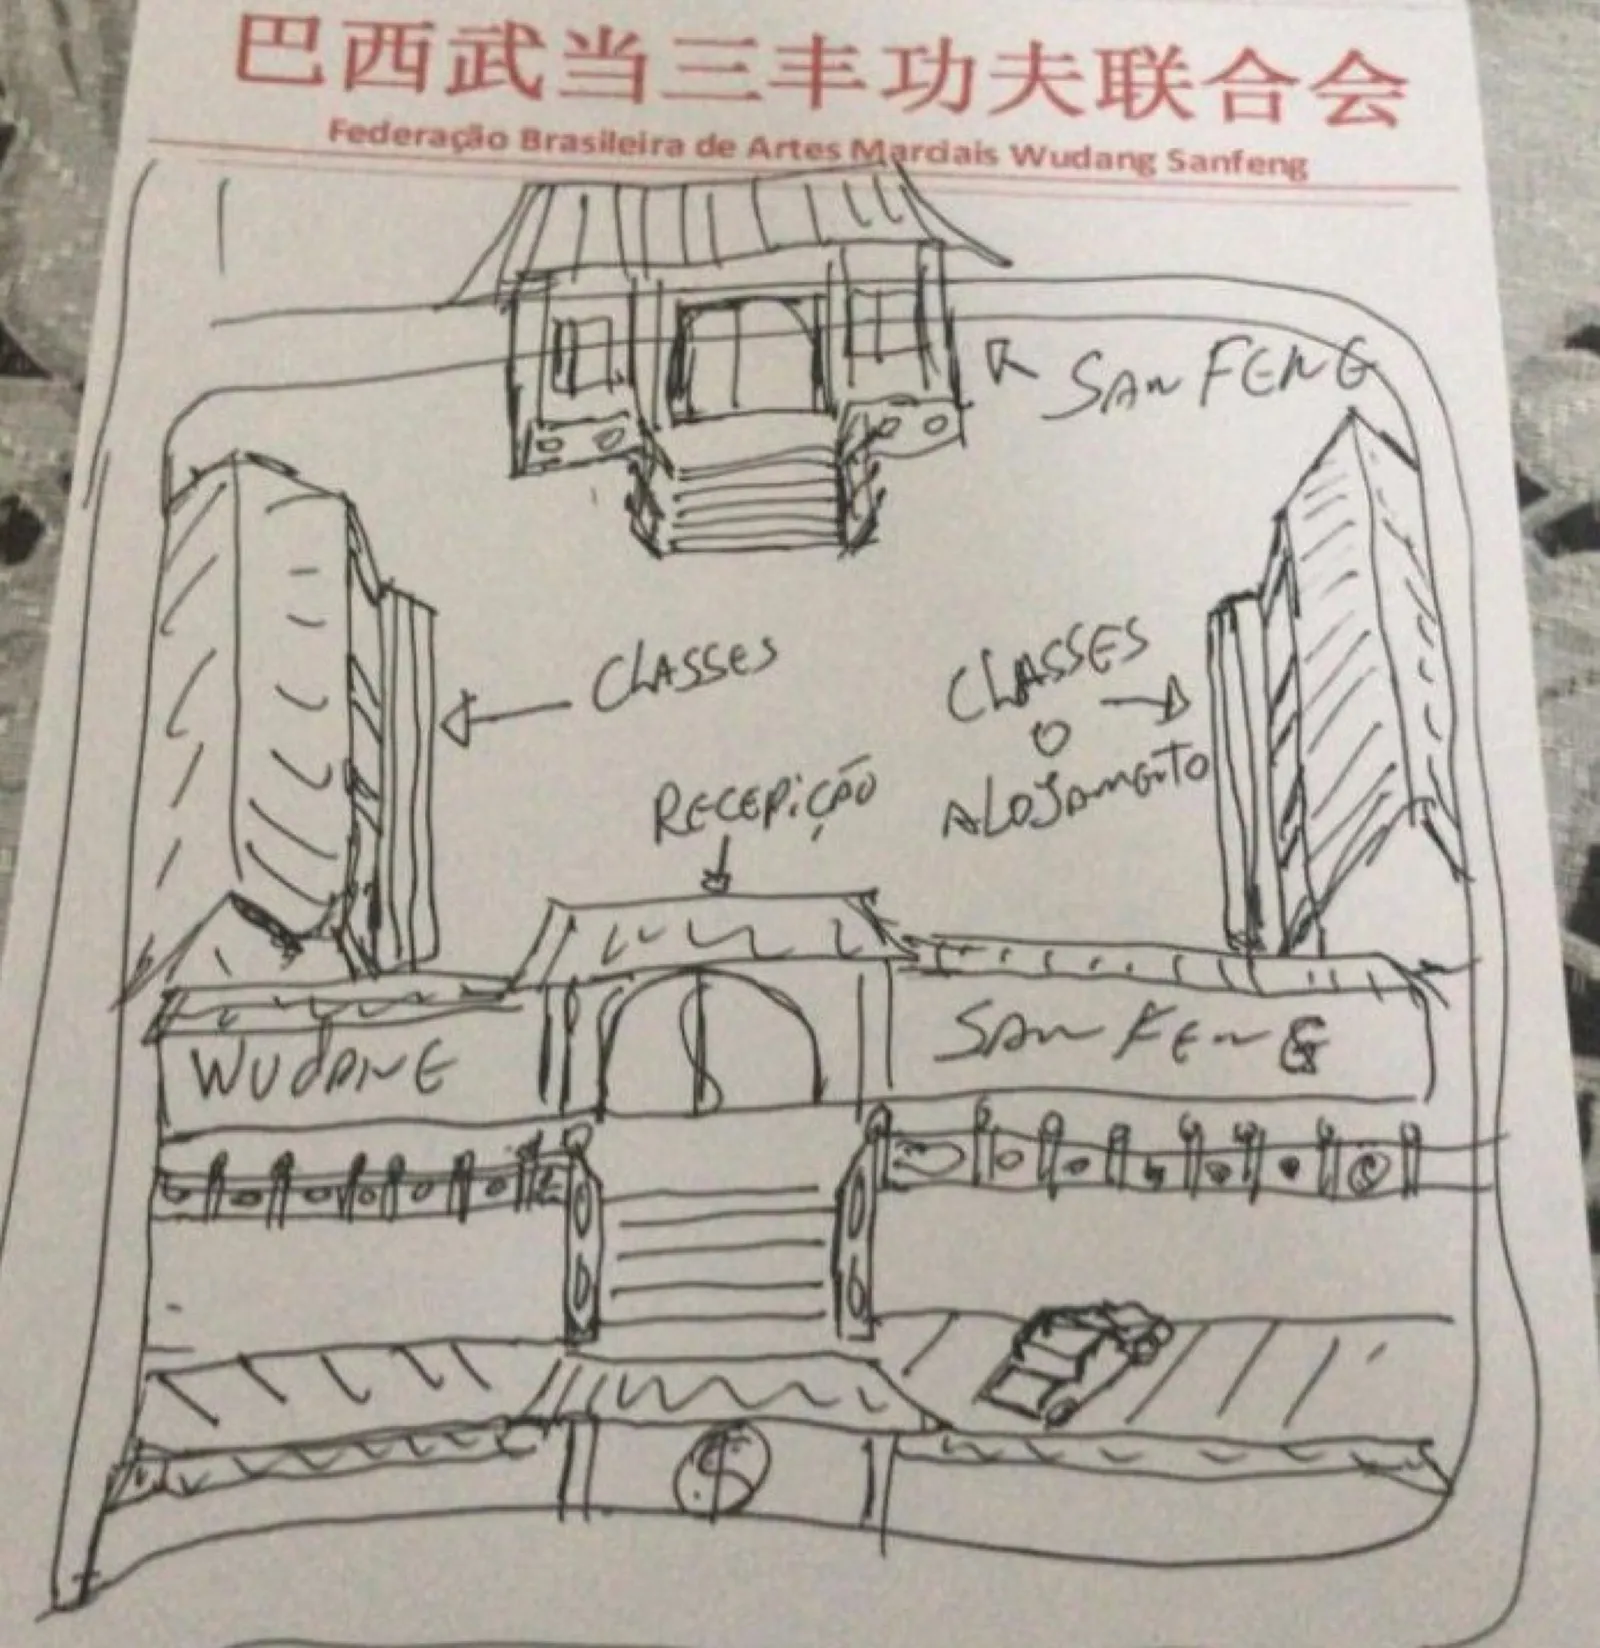 巴西武当三丰功夫联合会
Federação Brasileira de Artes Marciais Wudang Sanfeng
SAN FENG
CLASSES
CLASSES
O
ALOJAMENTO
RECEPIÇÃO
WUDANG
SAN FENG